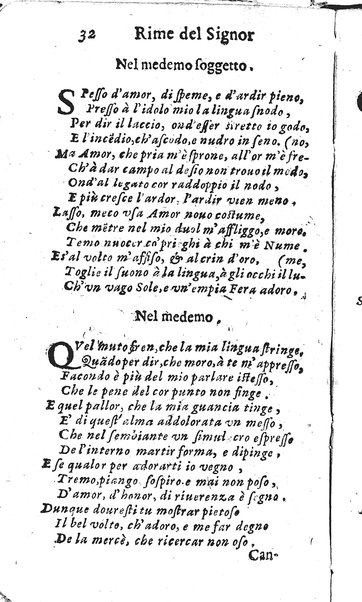 32 Rime del Signor
Nel medemo soggetto.
SPesso d'amor, di speme, e d'ardir pieno,
Presso à l'idolo mio la lingua snodo,
Per dir il laccio, ond'esser stretto io godo,
E l'incēdio, ch'ascodo, e nudro in seno. (no,
Ma Amor, che pria m'è sprone, all'or m'è fre-
Ch'à dar campo al desio non trouo il modo,
Ond'al legato cor raddoppio il nodo,
E più cresce l'ardor, l'ardir vien meno.
Lasso, meco vsa Amor nouo costume,
Che mētre nel mio duol m'affliggo, e moro,
Temo nuocer co' prieghi à chi m'è Nume.
Et al volto m'affiso, & al crin d'oro, (me,
Toglie il suono à la lingua, à gli occhi il lu-
Ch'vn vago Sole, e vn'empia Fera adoro.
Nel medemo.
QVel muto fren, che la mia lingua stringe,
Quādo per dir, che moro, à te m'appresso,
Facondo è più del mio parlare istesso,
Che le pene del cor punto non finge.
E quel pallor, che la mia guancia tinge,
E' di quest'alma addolorata vn messo,
Che nel sembiante vn simulacro espresso
De l'interno martir forma, e dipinge.
E se qualor per adorarti io vegno,
Tremo, piango, sospiro, e mai non poso,
D'amor, d'honor, di riuerenza è segno.
Dunque douresti tu mostrar pietoso
Il bel volto, ch'adoro, e me far degno
De la mercè, che ricercar non oso.
Can-